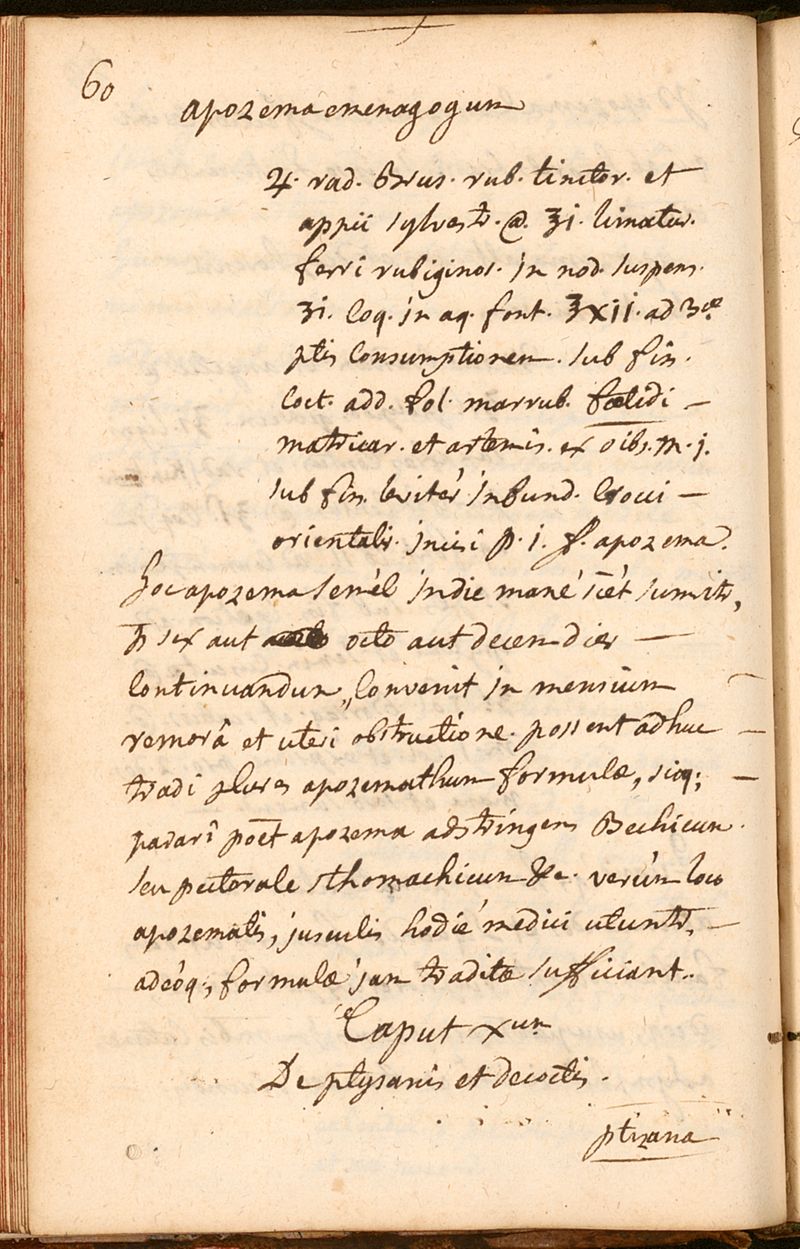 60
apozema emenagogum
♃. rad. Brus. rub. tinctor. et
appii sylvestr. @. ʒi. limatur.
ferri rubiginos. in nod. suspens.
ʒi. coq. in aq. font. ℥xii. ad 3æ
ptis consumptionem. sub fin.
coct. add. fol. marrub. fœtidi –
matricar. et artemis. ex oib. m. j.
sub fin. leviter infund. Croci –
orientalis. incisi p. i. f. apozema.
hoc apozema semél in die mané scét sumitr,
p sex aut octo aut decem dies –
continuandum, Convenit in mensium
remorâ et uteri obstructione. possent adhuc –
tradi plures apozemathum formulæ, sicq; –
parari pōēt apozema adstringens Bechicum
seu pectorale sthomachicum &c. verùm loco
apozematis, jusculis hodié medici utuntr, –
adeóq; formulæ jam traditæ sufficiant.
Caput Xum
De ptysanis et decoctis.
ptizana